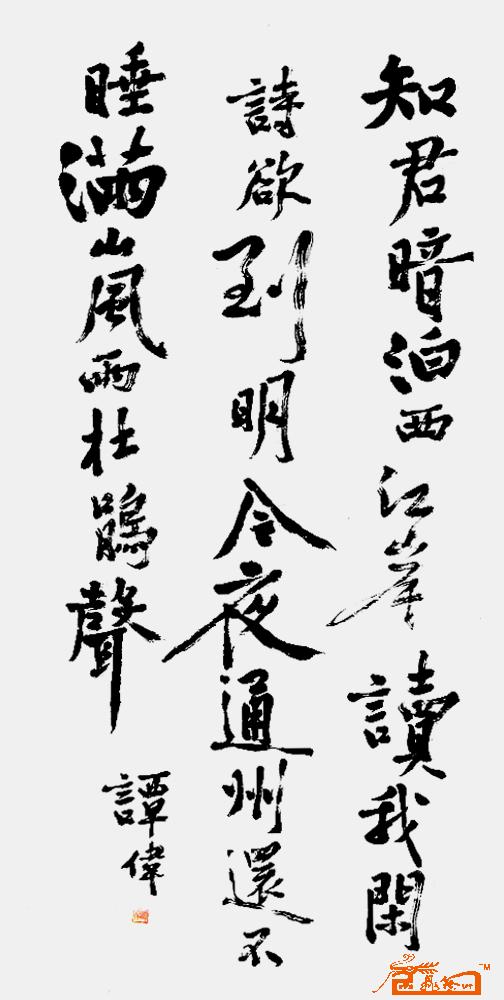 知君暗泊西江岸讀我閑
詩欲到明今夜通州還不
睡滿山風雨杜鵑聲
譚偉
TM